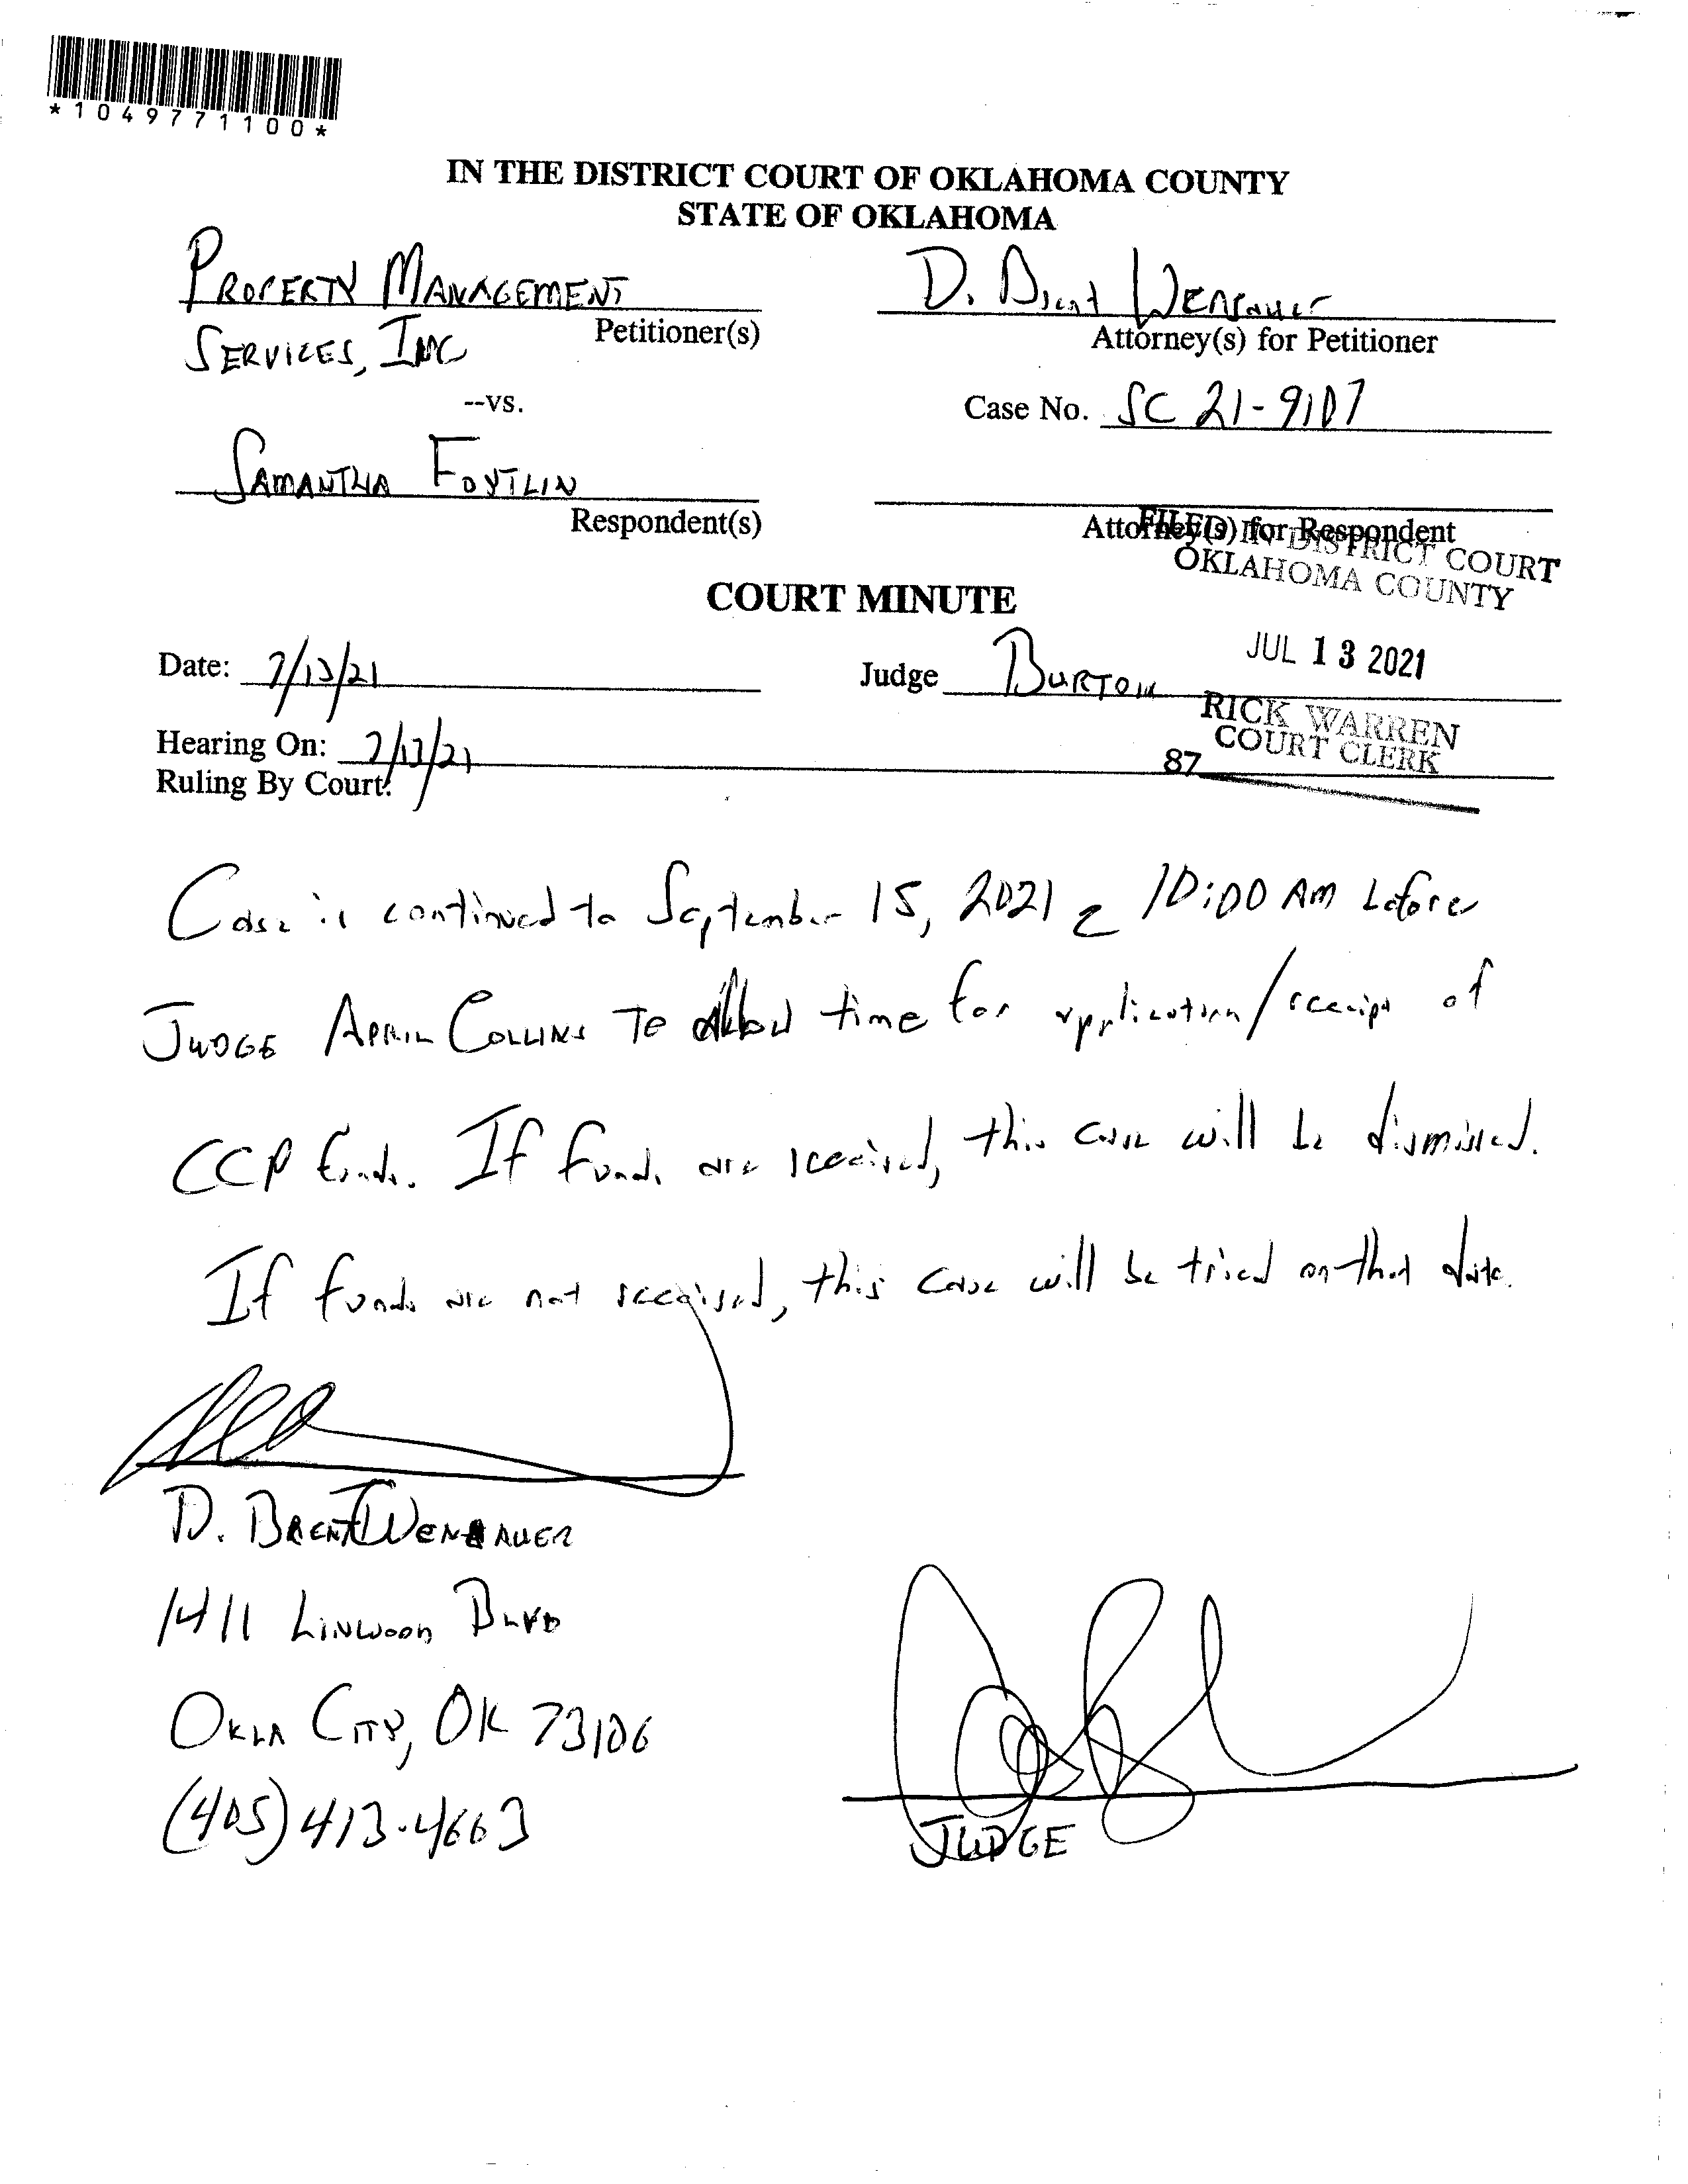 *1049771100*
IN THE DISTRICT COURT OF OKLAHOMA COUNTY
STATE OF OKLAHOMA
PROPERTY MANAGEMENT
SERVICES, INC
Petitioner(s)
D. Brent Wensauer
Attorney(s) for Petitioner
--vs.
Case No. SC 21-9107
SAMANTHA FOYTLIN
Respondent(s)
Attorney(s) for Respondent
FILED IN DISTRICT COURT
OKLAHOMA COUNTY
COURT MINUTE
JUL 13 2021
Date: 7/13/21
Judge BURTON
RICK WARREN
COURT CLERK
Hearing On: 7/13/21
87
Ruling By Court:
Case is continued to September 15, 2021 @ 10:00 AM before
JUDGE APRIL COLLINS TO allow time for application/receipt of
CCP funds. If funds are received, this case will be dismissed.
If funds are not received, this case will be tried on that date.
D. BRENT WENSAUER
1411 LINWOOD BLVD
OKLA CITY, OK 73106
(405) 413-4663
JUDGE